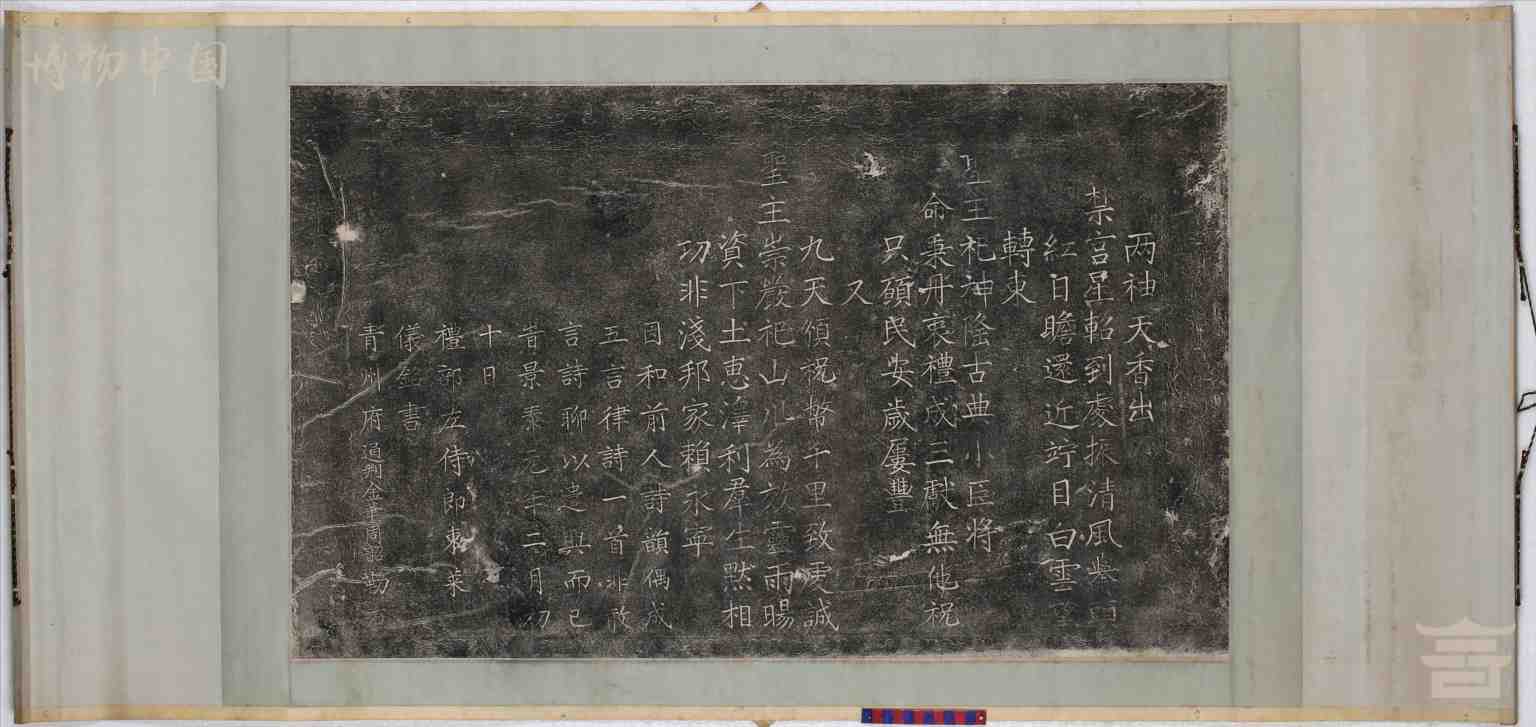 两袖天香出
禁宮星軺到處振清風
紅日瞻還近竚目白雲
轉東
聖王祀神隆古典小臣將
命秉丹衷禮成三獻無他祝
只願民安歲屢豐
又
九天頒祝幣千里致虔誠
聖主崇嚴祀山川為效靈雨暘
資下土惠澤利羣生默相
功非淺邦家賴永寧
因和前人詩韻偶成
五言律詩一首非敢
言詩聊以遣興而已
旹景泰元年二月初
十日
禮部左侍郎東萊
儀銘書
青州府通判金華周
博物中国